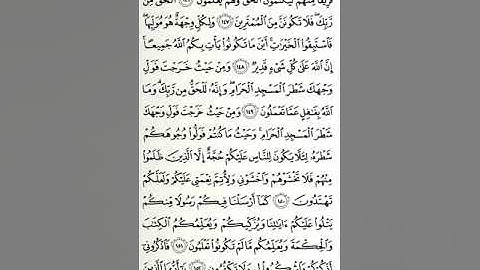 فَرِيقًا مِّنْهُمْ لَيَكْتُمُونَ الْحَقَّ وَهُمْ يَعْلَمُونَ ١٤٦ الْحَقُّ مِن
رَّبِّكَ فَلَا تَكُونَنَّ مِنَ الْمُمْتَرِينَ ١٤٧ وَلِكُلٍّ وِجْهَةٌ هُوَ مُوَلِّيهَا
فَاسْتَبِقُوا الْخَيْرَاتِ أَيْنَ مَا تَكُونُوا يَأْتِ بِكُمُ اللَّهُ جَمِيعًا
إِنَّ اللَّهَ عَلَىٰ كُلِّ شَيْءٍ قَدِيرٌ ١٤٨ وَمِنْ حَيْثُ خَرَجْتَ فَوَلِّ
وَجْهَكَ شَطْرَ الْمَسْجِدِ الْحَرَامِ وَإِنَّهُ لَلْحَقُّ مِن رَّبِّكَ وَمَا
اللَّهُ بِغَافِلٍ عَمَّا تَعْمَلُونَ ١٤٩ وَمِنْ حَيْثُ خَرَجْتَ فَوَلِّ وَجْهَكَ
شَطْرَ الْمَسْجِدِ الْحَرَامِ وَحَيْثُ مَا كُنتُمْ فَوَلُّوا وُجُوهَكُمْ
شَطْرَهُ لِئَلَّا يَكُونَ لِلنَّاسِ عَلَيْكُمْ حُجَّةٌ إِلَّا الَّذِينَ ظَلَمُوا
مِنْهُمْ فَلَا تَخْشَوْهُمْ وَاخْشَوْنِي وَلِأُتِمَّ نِعْمَتِي عَلَيْكُمْ وَلَعَلَّكُمْ
تَهْتَدُونَ ١٥٠ كَمَا أَرْسَلْنَا فِيكُمْ رَسُولًا مِّنكُمْ
يَتْلُوا عَلَيْكُمْ آيَاتِنَا وَيُزَكِّيكُمْ وَيُعَلِّمُكُمُ الْكِتَابَ
وَالْحِكْمَةَ وَيُعَلِّمُكُم مَّا لَمْ تَكُونُوا تَعْلَمُونَ ١٥١ فَاذْكُرُونِي
أَذْكُرْكُمْ وَاشْكُرُوا لِي وَلَا تَكْفُرُونِ ١٥٢ يَا أَيُّهَا الَّذِينَ